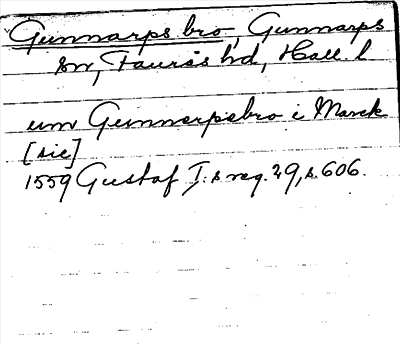 Gunnarps bro, Gunnarps
sn, Faurås hd, Hall. l
um Gunnarpsbro i Marck
[sic]
1559 Gustaf I:s reg. 29, s. 606.